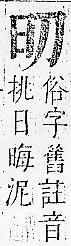 俗字舊註音
挑日晦泥